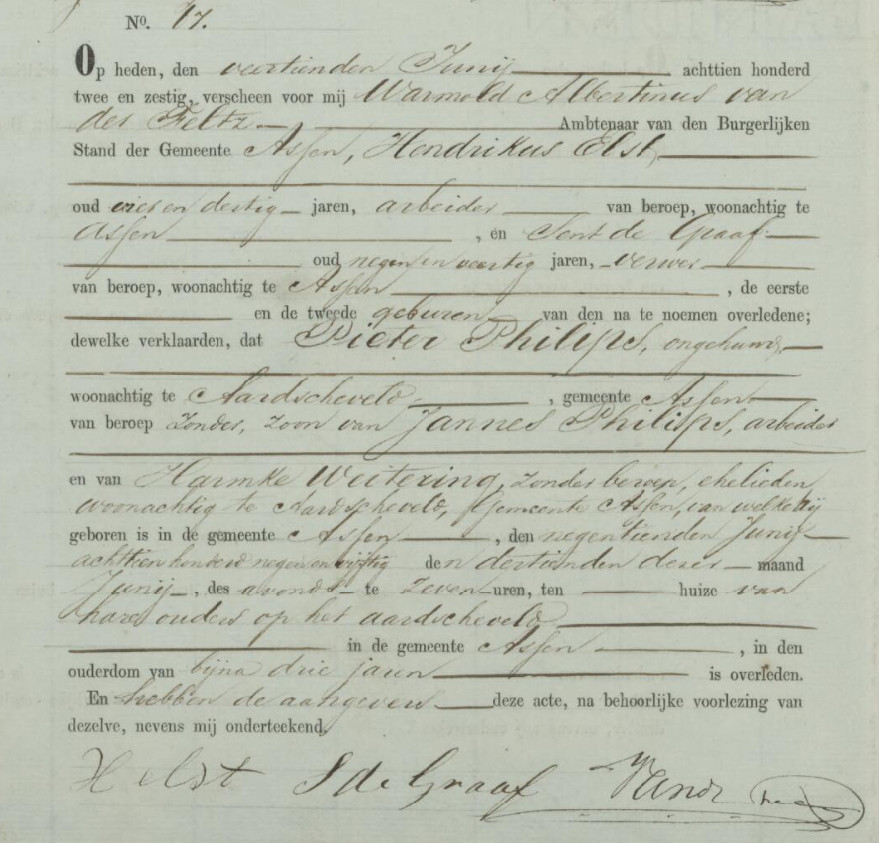 No. 97.
Op heden, den veertienden Junij achttien honderd
twee en zestig, verscheen voor mij Warmold Albertinus van
der Feltz Ambtenaar van den Burgerlijken
Stand der Gemeente Assen, Hendrikus Elst,
oud vier en dertig jaren, arbeider van beroep, woonachtig te
Assen , en Sent de Graaf
oud negen en veertig jaren, verwer
van beroep, woonachtig te Assen , de eerste
en de tweede geburen van den na te noemen overledene;
dewelke verklaarden, dat Pieter Philips, ongehuwd,
woonachtig te Aardscheveld , gemeente Assen
van beroep zonder, zoon van Jannes Philips, arbeider
en van Harmke Weitering, zonder beroep, ehelieden
woonachtig te Aardscheveld, Gemeente Assen, van welke hij
geboren is in de gemeente Assen , den negentienden Junij
achttienhonderd negen en vijftig den dertienden dezer maand
Junij , des avonds te zeven uren, ten huize van
hare ouders op het aardscheveld
in de gemeente Assen , in den
ouderdom van bijna drie jaren is overleden.
En hebben de aangevers deze acte, na behoorlijke voorlezing van
dezelve, nevens mij onderteekend.
H Elst S de Graaf Vand